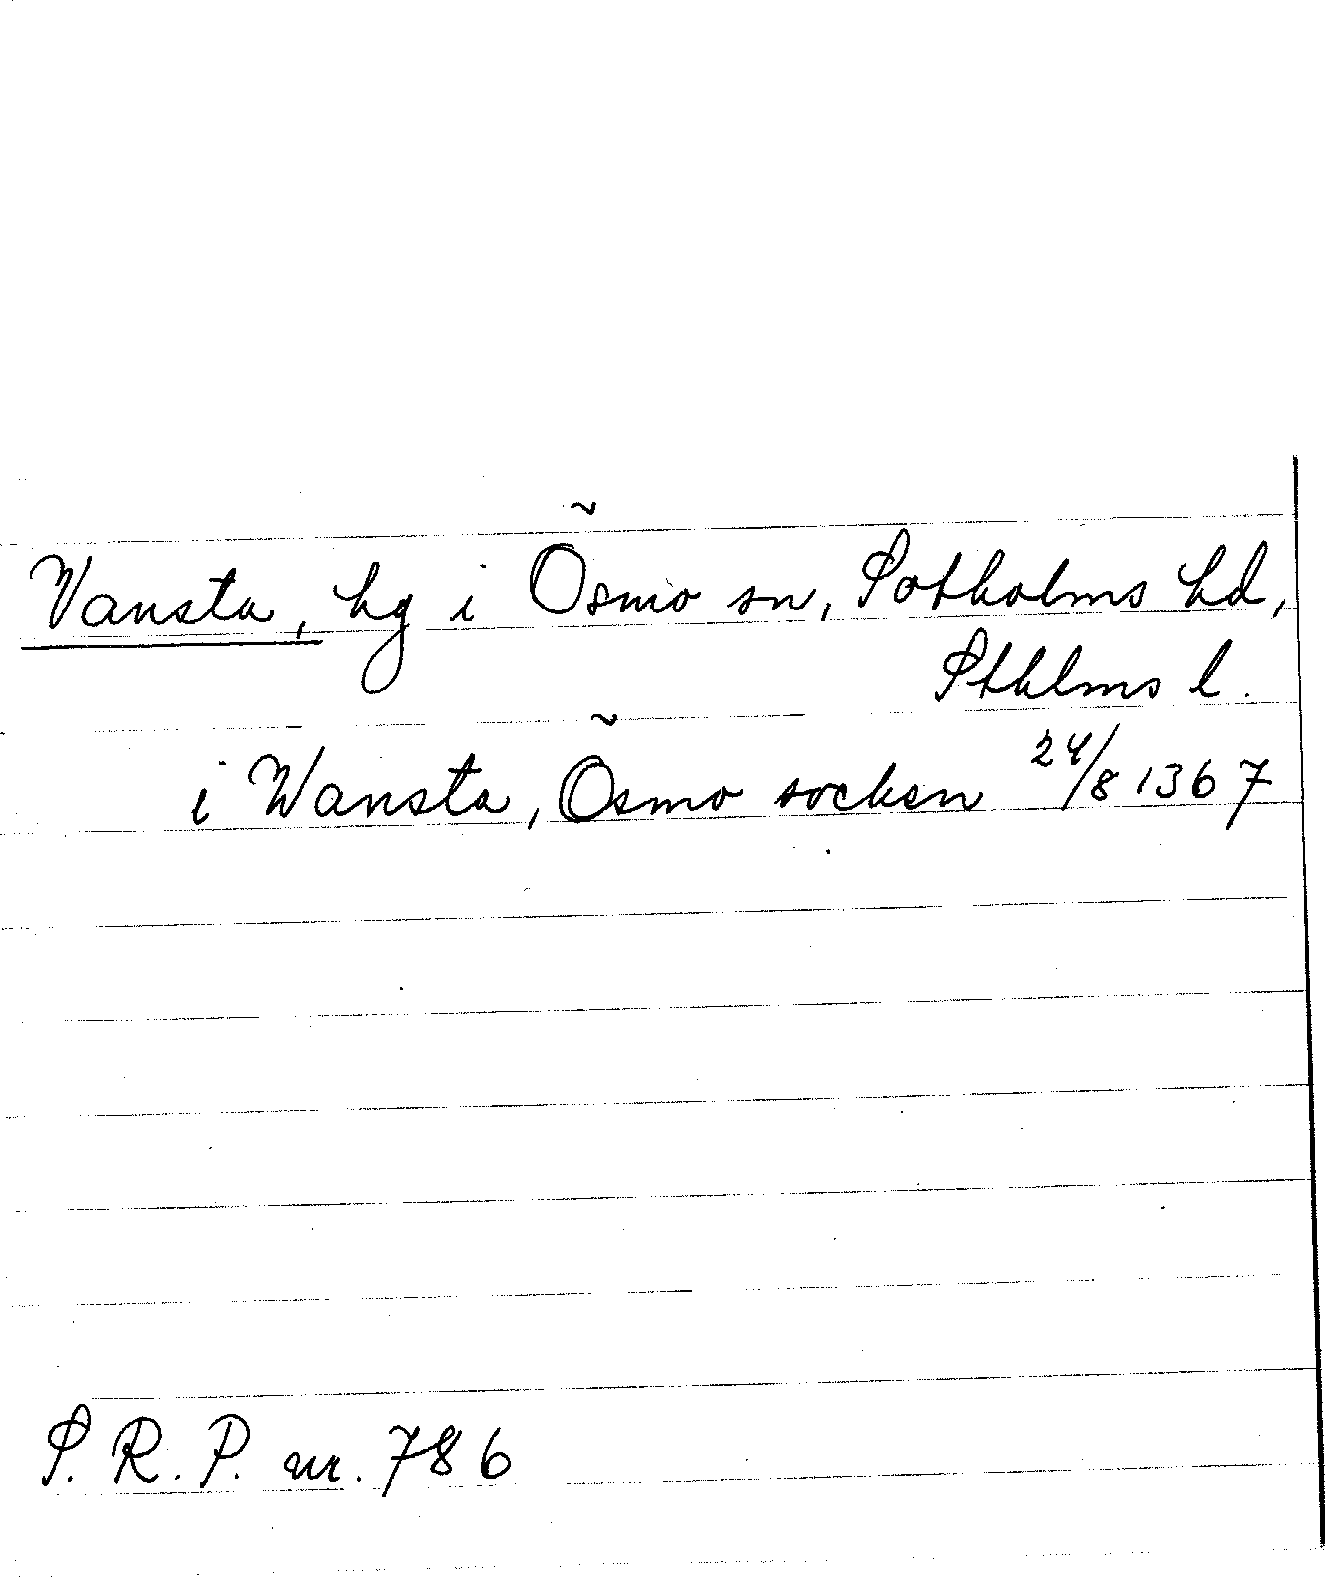 Vansta, hg i Ösmo sn, Sotholms hd,
Sthlms l.
i Wansta, Ösmo socken 24/8 1367
S.R.P. nr. 786